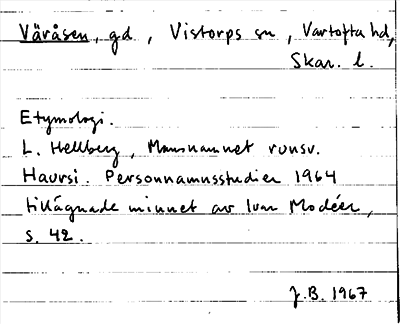 Väråsen, gd, Vistorps sn, Vartofta hd,
Skar. l.
Etymologi.
L. Hellberg, Mansnamnet runsv.
Haursi. Personnamnsstudier 1964
tillägnade minnet av Ivar Modéer,
s. 42.
J.B. 1967